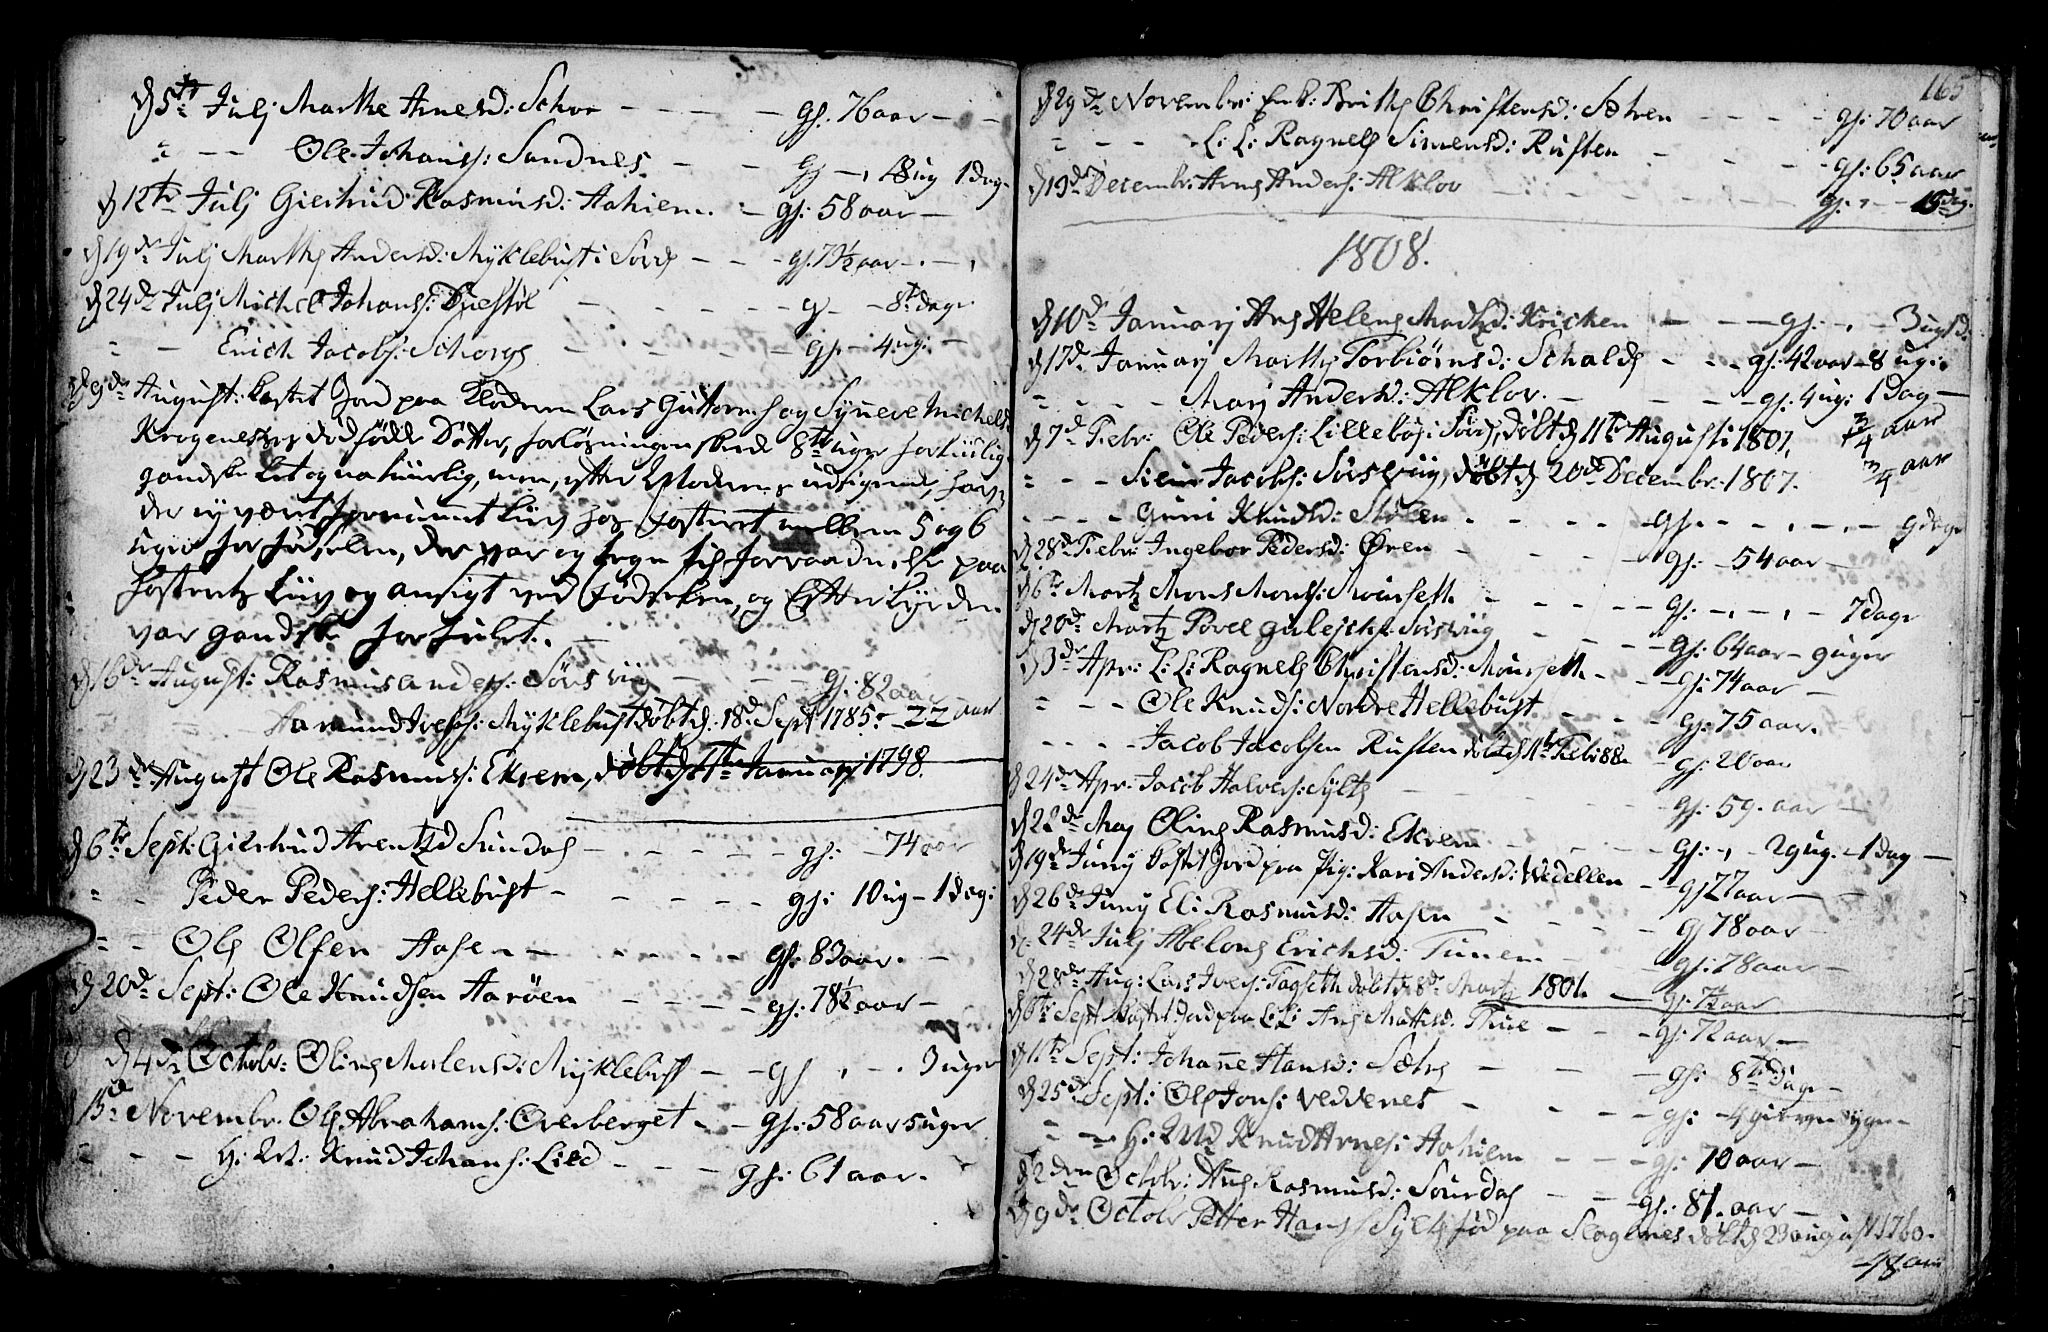 d 5te Julj Marthe Arnesd: Schor - - - - - gl. 76 aar - -
" - - Ole Johans: Sandnes - - gl -, 18 ug 1 dag
d 12te Julj Giertrud Rasmusd: Aahiem - gl: 58 aar -
d 19de Julj Marthe Andersd: Myklebust i Sørd - - - gl. 79½ aar
d 24de Julj Michel Johans: - - - - gl - 8te dage
" - Erich Jacobs: Schorge - - - - gl - 4 ug: -
d 9de August: Kastet Jord paa Lars Guttorms og Synneve Michelsd
Krogenes dødfødde Datter, forløsningen skede 8te uger for
gandske let og naturlig, men, efter Moderens udsigende, hav
der ey været fornummet Liiv hos Fosteret mellem 5 og 6
uger før fødselen, der var og tegn paa
Fosterets Liiv og ansigt ved Fødselen, og Efter
var gandske forfulet. -
d 16de August: Rasmus Anders: Sørsviig - - - gl. 82 aar
Aamund Ivers: Myklebust døbt d: 18d Sept 1785. - 22 aar
d 23de August Ole Rasmus: Ekrem, døbt d 1te Januarj 1798.
d 6te Sept: Giertrud Arentzd Sundal - - - - - gl: - 74 aar
" - Peder Peders: Hellebust - - - - - gl: 10 ug - 1 dag:
" - Ole Olsen Aasen - - - - - gl: 83 aar. -
d 20d Sept: Ole Knudsen Aarøen - - - - gl: 78½ aar -
d 4de Octobr: Oline Molensd: Myklebust - - gl , - . 3 uger
15d Novembr. Ole Abrahams: Overberget - - gl: 58 aar 5 uger
" - - - H: M: Knud Johans: Lied - - - gl: 61 aar.
165
d 29de Novembr: Enk: Brithe Christensd: Sætren - - - - gl: 70 aar
" - - - L: L: Ragnele Simensd: Rusten - - - - gl: 65 aar
d 13de Decembr: Arne Anders: Alklov - - - - - gl. - - 15 dag.
1808.
d 10d Januarj Ane Helene Madtzd: Kricken - - - gl: - , - 3 ug 5 d.
d 17d Januarj Marthe Torbiørnsd: Schalde - - - gl: 42 aar - 8 ug:
" - - - Marj Andersd: Alklov. - - - - gl: 4 ug: 1 Dag -
d 7d Febr: Ole Peders: Lillebøe i Sørd, døbt d 11te Augusti 1807. ¾ aar
" - - Siur Jacobs: Sørsviig, døbt d 20d Decembr: 1807. ¾ aar
- - - - Guri Knudsd: Stølen - - - - gl: - - , - , - 9 dage
d 28d Febr: Ingebor Pedersd: Øren - - - - gl: - 54 aar -
d 6te Martz Mons Mons: Mourseth - - - - gl: - , - , - 7 dage
d 20d Martz Povel Sørsviig - - - - gl: 64 aar - 9 uger
d 3de Apr: L: L: Ragnele Christensd: Mourseth - - - gl: 74 aar -
" - - - Ole Knuds: Nordre Hellebust - - - - gl: 75 aar.
- - - - Jacob Jacobsen Rusten døbt d 11te Febr: 88 - gl: 20 aar
d 24de Apr: Jacob Halvers: Sylte - - - - - gl: 59. aar -
d 22de Maj Oline Rasmusd: Ekrem - - - - gl: - , 29 ug. - 1 dag -
d 19de Junij Kastet Jord paa Pig: Kari Andersd: Wedellen - - gl 27 aar - -
d 26de Junij Eli Rasmusd: Aasen - - - - gl 78 aar -
d 24de Julj Abelone Erichsd: Tunem - - - - gl: 78 aar -
d 28de Aug: Lars Ivers: Tagseth døbt d 8de Martz 1801. - gl: 7½ aar
d 6te Sept Kastet Jord paa L: L: Ane Mattisd. Thue - - - gl: 72 aar -
d 11te Sept: Johanne Hansd: Sætre - - - - gl: 8te Dage -
d 25d Sept: Ole Jons: Veddenes - - - - gl: - 4
" - - H: M: Knud Arnes: Aahiem - - - gl: 70 aar -
d 2den Octobr: Ane Rasmusd: Sourdal - - - gl: 81. aar -
d 9de Octobr Petter Hans: Sylte fød paa Slagnes døbt d 23 august 1760.
- 48 aar